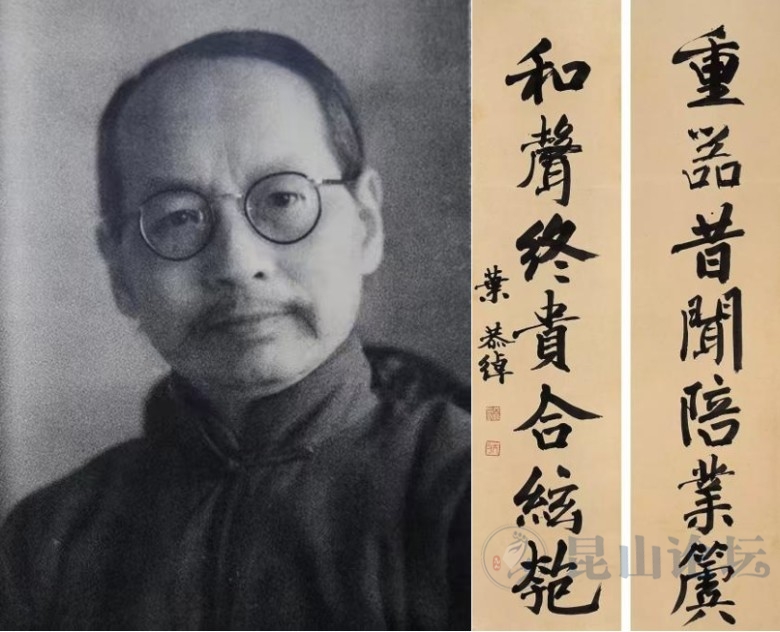 重器昔聞陪業簴
和聲終貴合絃匏
葉恭綽
昆山论坛